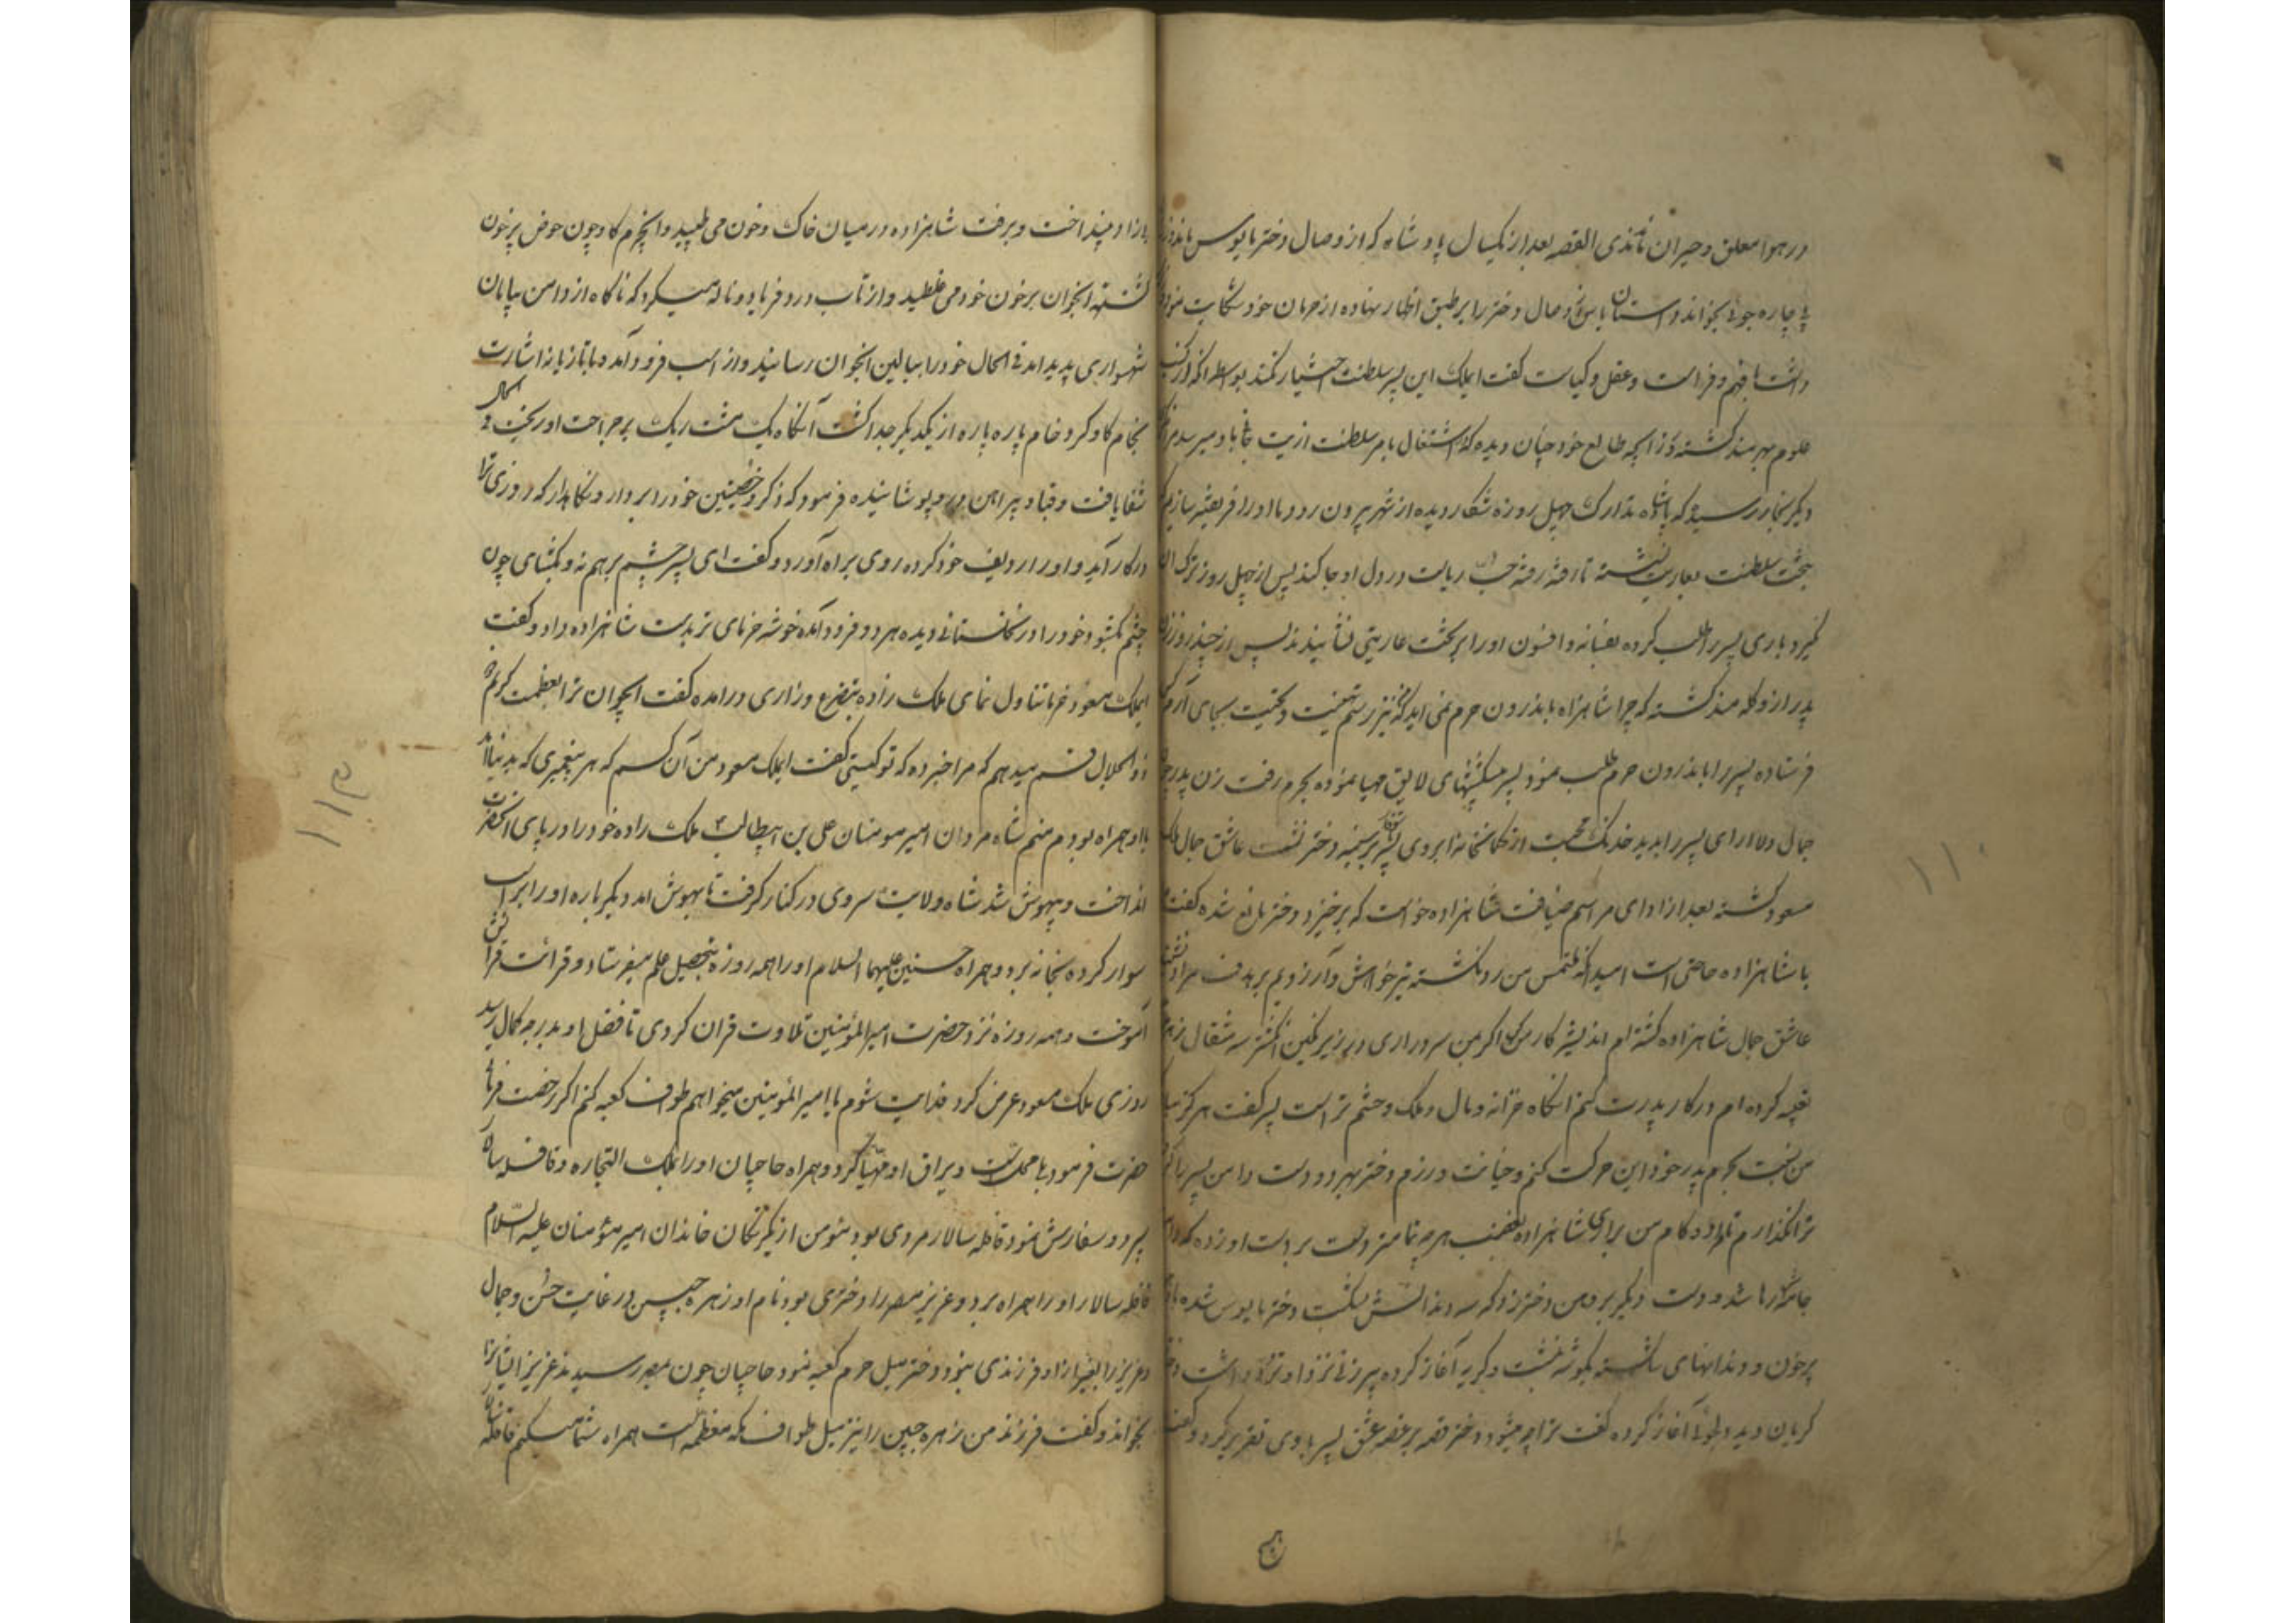 در هوا معلق و حیران ماندی القصه بعد از یکسال پادشاه که از وصال دختر مایوس ماند
چاره جوئی بخواند و داستان یاس وصال دختر را بر طبق اظهار نهاده از حرمان خود شکایت نمود
داشت با فهم و فراست و عقل و کیاست گفت ایملک این پسر سلطنت اختیار نکند بواسطه آنکه
علوم بهرمند گشته و زایجه طالع خود چنان دیده که اشتغال بامر سلطنت ازیت باو میرسد
دیگر بخاطر رسید که پادشاه تدارک چهل روزه شکار دیده از شهر بیرون رود و ما او را فریفته سازیم
بتخت سلطنت بعاریت نشسته تا رفته رفته حب ریاست در دل او جا کند پس از چهل روز ترک آن
گیرد باری پسر را طلب کرده بفسانه و افسون او را بر تخت عاریتی نشانیدند پس از چند روز
پدر از و گله مند گشته که چرا شاهزاده باندرون حرم نمی آید کنیز رسم تهنیت و تحیت بجای آرم
فرستاده پسر را باندرون حرم طلب نمود پسر پیشکشهای لایق مهیا نموده بحرم رفت زن پدر
جمال دلارای پسر را بدید خدنک محبت از کمانخانه ابروی پسر بر سینه دختر نشست عاشق جمال ملک
مسعود گشته بعد از ادای مراسم ضیافت شاهزاده خواست که برخیزد دختر مانع شده گفت
با شاهزاده حاجتی است امید آنکه ملتمس من رد نگشته تیر خواهش و آرزویم بر هدف مراد
عاشق جمال شاهزاده گشته ام اندیشه کار من کن اگر بمن سر در اری در زیر نگین انگشتر سه مثقال زهر
تعبیه کرده ام در کار پدرت کنم آنگاه خزانه و مال و ملک و حشم تراست پسر گفت هرگز
من نسبت بحرم پدر خود این حرکت کنم و خیانت ورزم دختر بهر دو دست دامن پسر
ترا نگذارم تا مراد و کام من برای شاهزاده بغضب هر چه تمامتر دست بر دست او زده که
جامه اش رها شد و دست دیگر بر دهن دختر زد که سه دندانش بشکست دختر مایوس شده
پرخون و دندانهای شکسته بگوشه نشست و گریه آغاز کرده پیر زنی نزد او تردد داشت
گریان دید دلجوئی آغاز کرده گفت ترا چه میشود دختر قصه پر غصه عشق پسر با وی تقریر کرد و گفت
۱۱۰
بینداخت و برفت شاهزاده در میان خاک و خون می طپید و آنچرم گاو چون حوض پرخون
گشته آنجوان بر خون خود می غلطید و از تاب درد فریاد و ناله میکرد که ناگاه از دامن بیابان
شهسواری پدید آمد فی الحال خود را ببالین آنجوان رسانید و از اسب فرود آمد و با تازیانه اشارت
بخام گاو کرد خام پاره پاره از یکدیگر جدا گشت آنگاه یک مشت ریک بر جراحت او ریخت فی الحال
شفا یافت و قبا و پیراهن در و پوشانیده فرمود که ذکر و خصیتین خود را بردار و نگاهدار که روزی ترا
درکار آید و او را ردیف خود کرده روی براه آورد و گفت ای پسر چشم بر هم نه و بگشای چون
چشم بگشود خود را در نخلستانی دیده هر دو فرود آمده خوشه خرمای تر بدست شاهزاده داد و گفت
ایملک مسعود خرما تناول نمای ملک زاده بتضرع و زاری درآمده گفت ایجوان ترا بعظمت کریم
ذو الجلال قسم میدهم که مرا خبر ده که تو کیستی گفت ایملک مسعود من آن کسم که هر پیغمبری که بدنیا آمد
با او همراه بودم منم شاه مردان امیر مومنان علی بن ابیطالب ملک زاده خود را در پای آنحضرت
انداخت و بیهوش شد شاه ولایت سر وی در کنار گرفت تا بهوش امد دیگر باره او را بر اسب
سوار کرده بخانه برد و همراه حسنین علیهما السلام او را همه روزه بتحصیل علم میفرستاد و قرائت قرآن
آموخت و همه روزه نزد حضرت امیر المؤمنین تلاوت قران کردی تا فضل او بدرجه کمال رسید
روزی ملک مسعود عرض کرد فدایت شوم یا امیر المؤمنین میخواهم طوف کعبه کنم اگر رخصت فرمائی
حضرت فرمود تا و یراق او مهیا کرد و همراه حاجیان او را بملک التجاره و قافله سالار
سپرد و سفارش نمود قافله سالار مردی بود مومن از یکرنگان خاندان امیر مؤمنان علیه السلام
قافله سالار او را همراه برد و عزیز مصر را دختری بود نام او زهره جبین در غایت حسن و جمال
و عزیز را بغیر از او فرزندی نبود و دختر میل حرم کعبه نمود حاجیان چون بمصر رسیدند عزیز ایشانرا
بخواند و گفت فرزند من زهره جبین را نیز میل طواف مکه معظمه است همراه شما میکنم قافله
۱۱۲